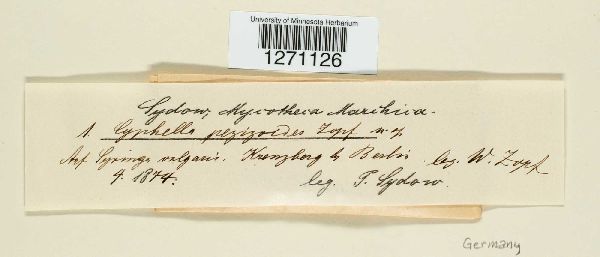 University of Minnesota Herbarium
1271126
Sydow, Mycotheca Marchica.
1 Cyphella pezizoides Zopf n. sp.
Auf Syringa vulgaris. Kreuzberg b. Berlin leg. W. Zopf
4. 1874. leg. P. Sydow.
Germany